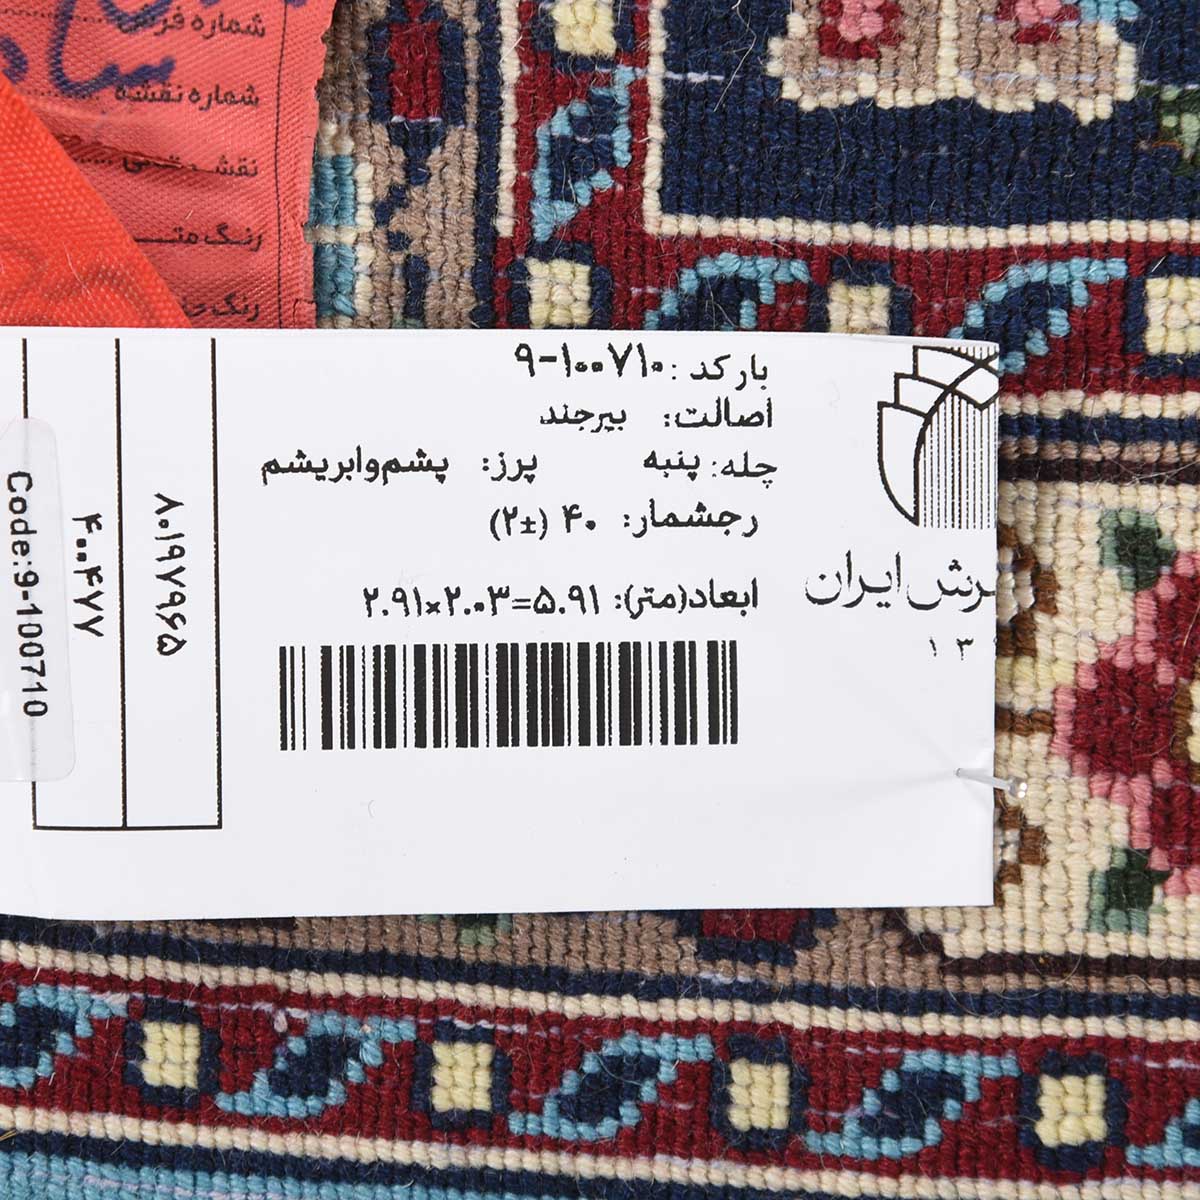 شماره فرش
شماره نقشه
رنگ
بارکد: ۹-۱۰۰۷۱۰
اصالت: بیرجند
چله: پنبه پرز: پشم‌و‌ابریشم
رجشمار: ۴۰ (±۲)
ابعاد(متر): ۲.۹۱×۲.۰۳=۵.۹۱
رش ایران
۱۳
۸۰۱۹۷۹۶۵
۴۰۰۴۷۷
Code:9-100710